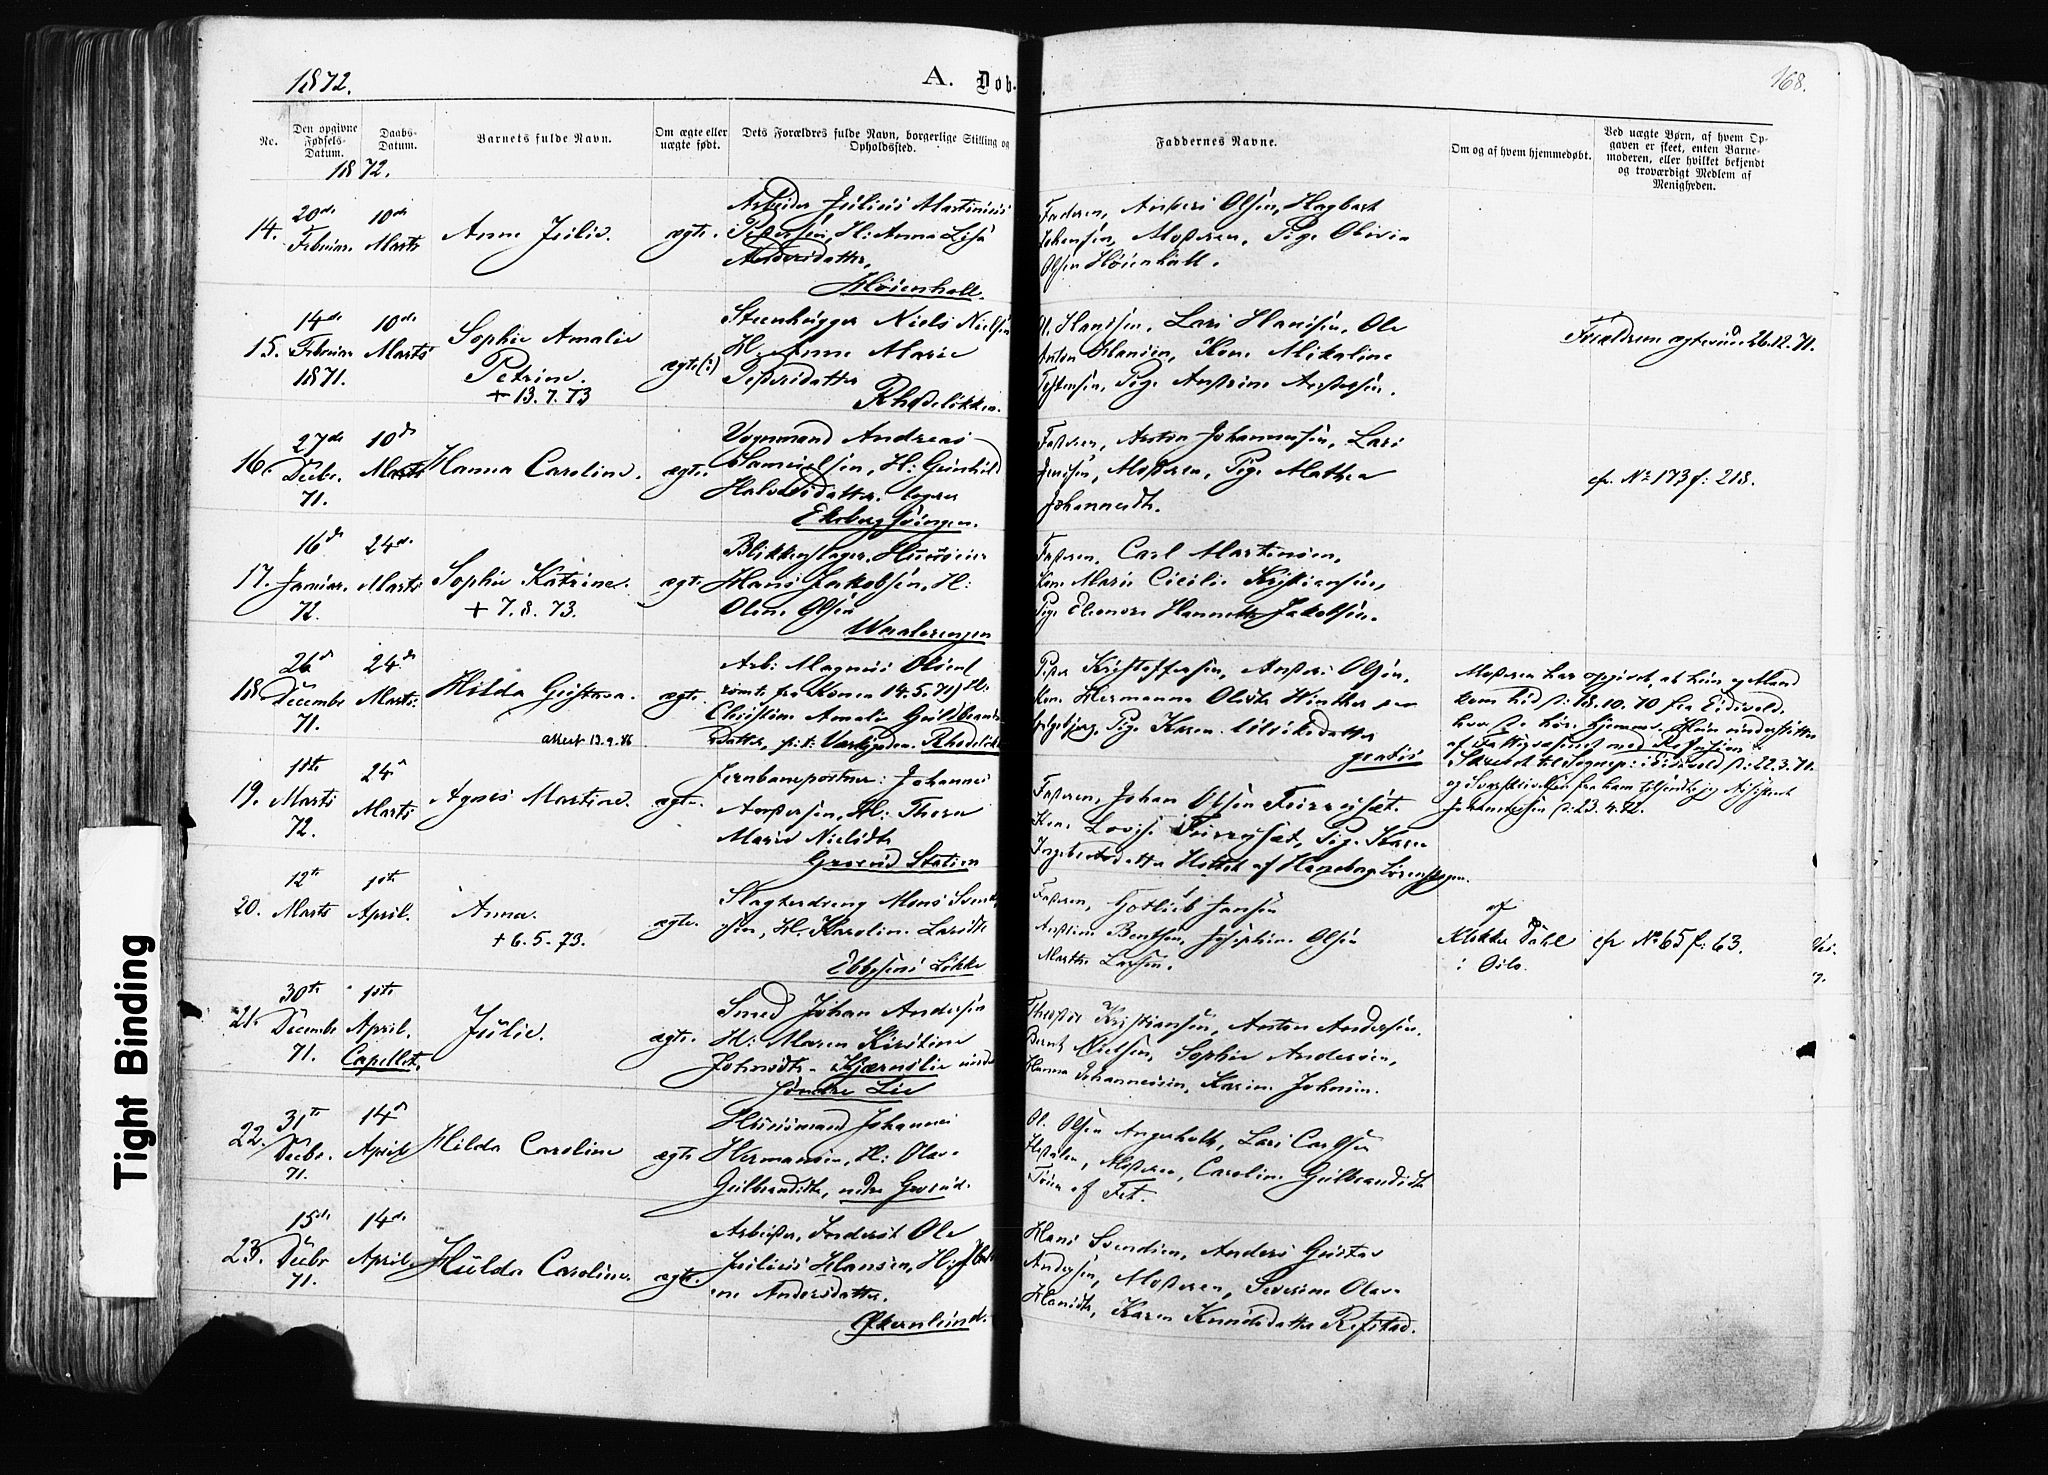 1872.
A. Døb-
168.
No.
Den opgivne Fødsels-Datum.
Daabs-Datum.
Barnets fulde Navn.
Om ægte eller uægte født.
Dets Forældres fulde Navn, borgerlige Stilling og Opholdssted.
Faddernes Navne.
Om og af hvem hjemmedøbt.
Ved uægte Børn, af hvem Opgaven er skeet, enten Barnemoderen, eller hvilket bekjendt og troværdigt Medlem af Menigheden.
1872.
14.
20de Februar.
10de Marts
Anne Julie.
ægte.
Arbeider Julius Martinius
Pedersen, H: Anna Lisa
Andersdatter,
Høienhall.
Faderen, Anders Olsen, Hagbart
Johensen, Moderen, Pige Olivia
Olsen Høienhall.
15.
14de Februar 1871.
10de Marts
Sophie Amalie
Petrine.
+ 13.7.73
ægte(:)
Steenhugger Niels Nielsen
H. Anne Marie
Pedersdatter
Rhodeløkken.
Ol. Hansen, Lars Hansen, Ole
Anton Hansen, Kone Mikaline
Pige Andrine Andersen.
Forældrene ægteviede 26.12.71.
16.
27de Decbr. 71.
10de Marts
Hanna Caroline.
ægte.
Vognmand Andreas
Samuelsen, H: Gunhild
Halvorsdatter.
Ekeberg Svingen.
Faderen, Anton Johannesen, Lars
Jensen, Moderen, Pige Mathea
Johannesdtr.
cfr. No 173 f: 218.
17.
16de Januar. 72.
24de Marts
Sophie Katrine.
+ 7.8.73.
ægte
Blikkenslager, Huuseier
Hans Jakobsen, H:
Oline Olsen
Waalerengen
Faderen, Carl Martinsen,
Kone Marie Cicilie Kristiansen,
Pige Eleonore Hannette Jakobsen.
18
26de December 71.
24de Marts.
Hilda Gustava.
attest 13.9.86
ægte.
Arb: Magnus Olsen
rømte fra Konen 14.5.71) H:
Christine Amalie Guldbrands-
datter, Rhodeløkk
Peder Kristoffersen, Anders Olsen,
Kone Hermanna Olivia Winther
Pige Karen
gratis
Moderen har opgivet, at hun og Mand
kom hid d: 18.10.70 fra Eidsvold.
hvor de hører hjemme. Hun understøttes
af Fattigvæsenet med Refusion.
Skrevet til Sognep: i Eidsvold d: 22.3.72.
Johannessen d: 23.4.72.
19.
10de Marts 72.
24de Marts
Agnes Martine.
ægte.
Jernbaneportner: Johannes
Andersen, H: Thora
Marie Nielsdtr
Grorud Station
Faderen, Johan Olsen Furuset.
Kone Lovise Furuset, Pige Karen
Ingebretsdatter
20.
12te Marts
1ste April.
Anna.
+ 6.5.73.
ægte.
Slagterdreng Mons Svend-
sen, H. Karoline Larsdtr
Ebbesens Løkke
Faderen, Gotlieb Jansen
Andrine Bentsen, Josephine Olsen
Marthe Larsen.
af
Klokker Dahl
i Oslo.
cfr No 65 f: 63.
21.
30te December 71.
1ste April.
Capellet.
Julie.
ægte.
Smed Johan Andersen
H: Maren Kirstine
Johnsdtr - Kjærnslie under
Søndre Lie
Theodor Kristiansen, Anton Andersen.
Bernt Nielsen, Sophie Andersen,
Hanna Johannesen, Karine Johnsen.
22.
31te Decbr. 71.
14de April
Hilda Caroline
ægte
Huusmand Johannes
Hermansen, H: Olave
Gulbrandsdtr, nedre Grorud.
Ol. Olsen Angerholt, Lars Carlsen
Moderen, Caroline Gulbrandsdtr
af Fet.
23.
15de Decbr 71.
14de April.
Hulda Caroline.
ægte.
Arbeider, Inderst Ole
Julius Hansen, H:
ne Andersdatter.
Økernlund.
Hans Svendsen, Anders Gustav
Andersen, Moderen, Severine Olave
Hansdtr, Karen Knudsdatter Refstad.
Tight Binding